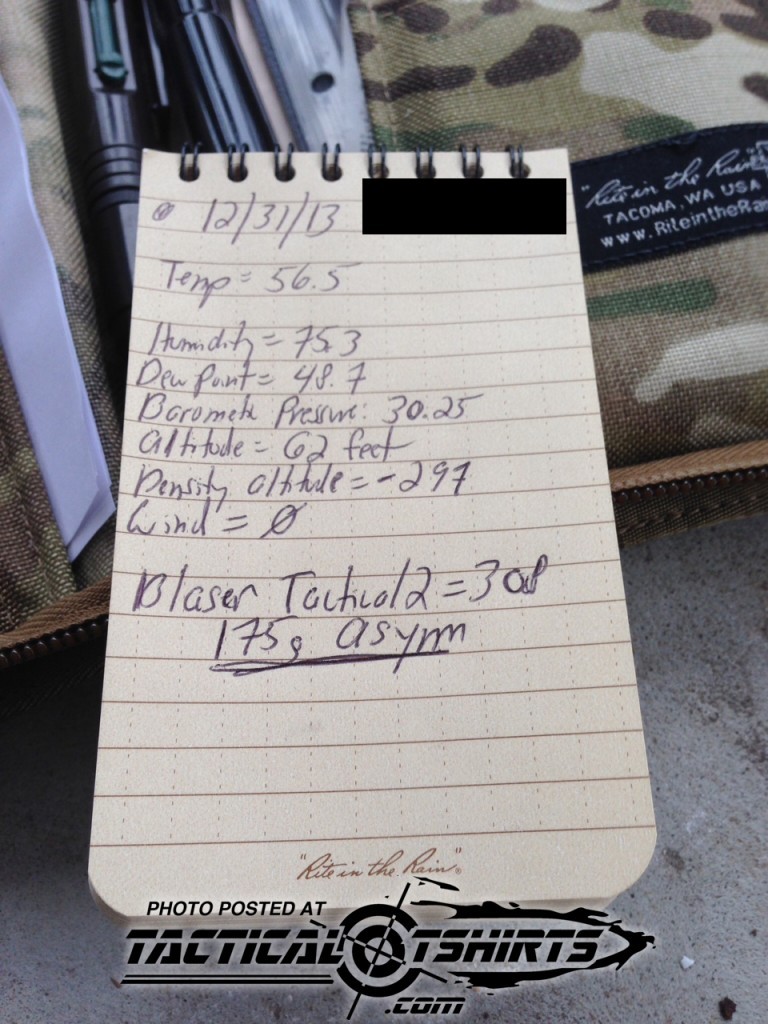 12/31/13
Temp = 56.5
Humidity = 75.3
Dew Point = 48.7
Barometk Pressure: 30.25
altitude = 62 feet
Density altitude = -297
Wind = Ø
Blaser Tactical 2 = 308
175g asym
"Rite in the Rain"®
"Rite in the Rain"
TACOMA, WA USA
www.RiteintheRa
PHOTO POSTED AT
TACTICAL TSHIRTS
.com